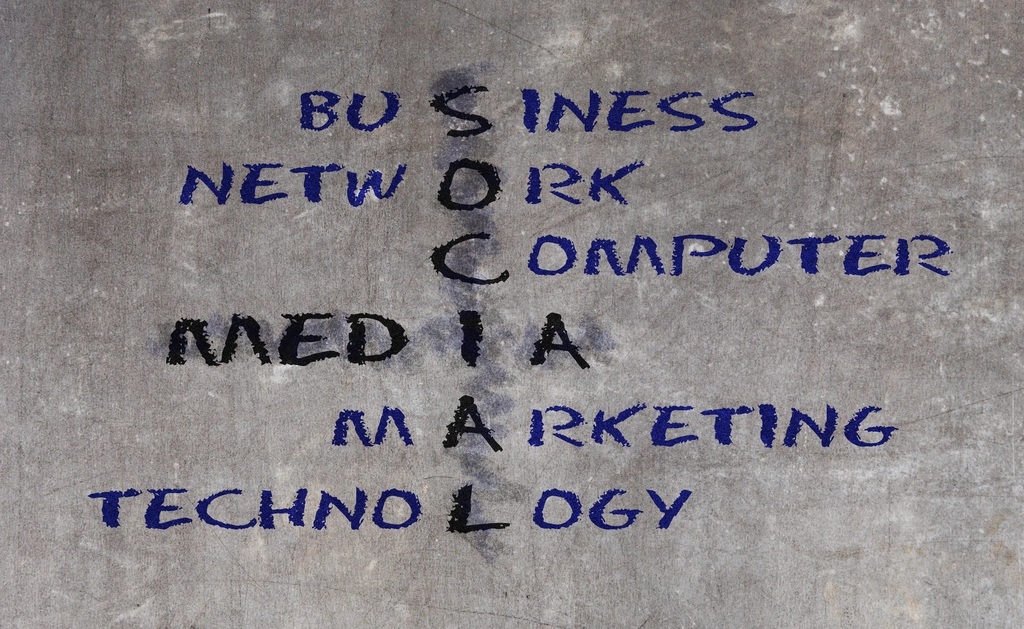 BUSINESS
NETWORK
COMPUTER
MEDIA
MARKETING
TECHNOLOGY